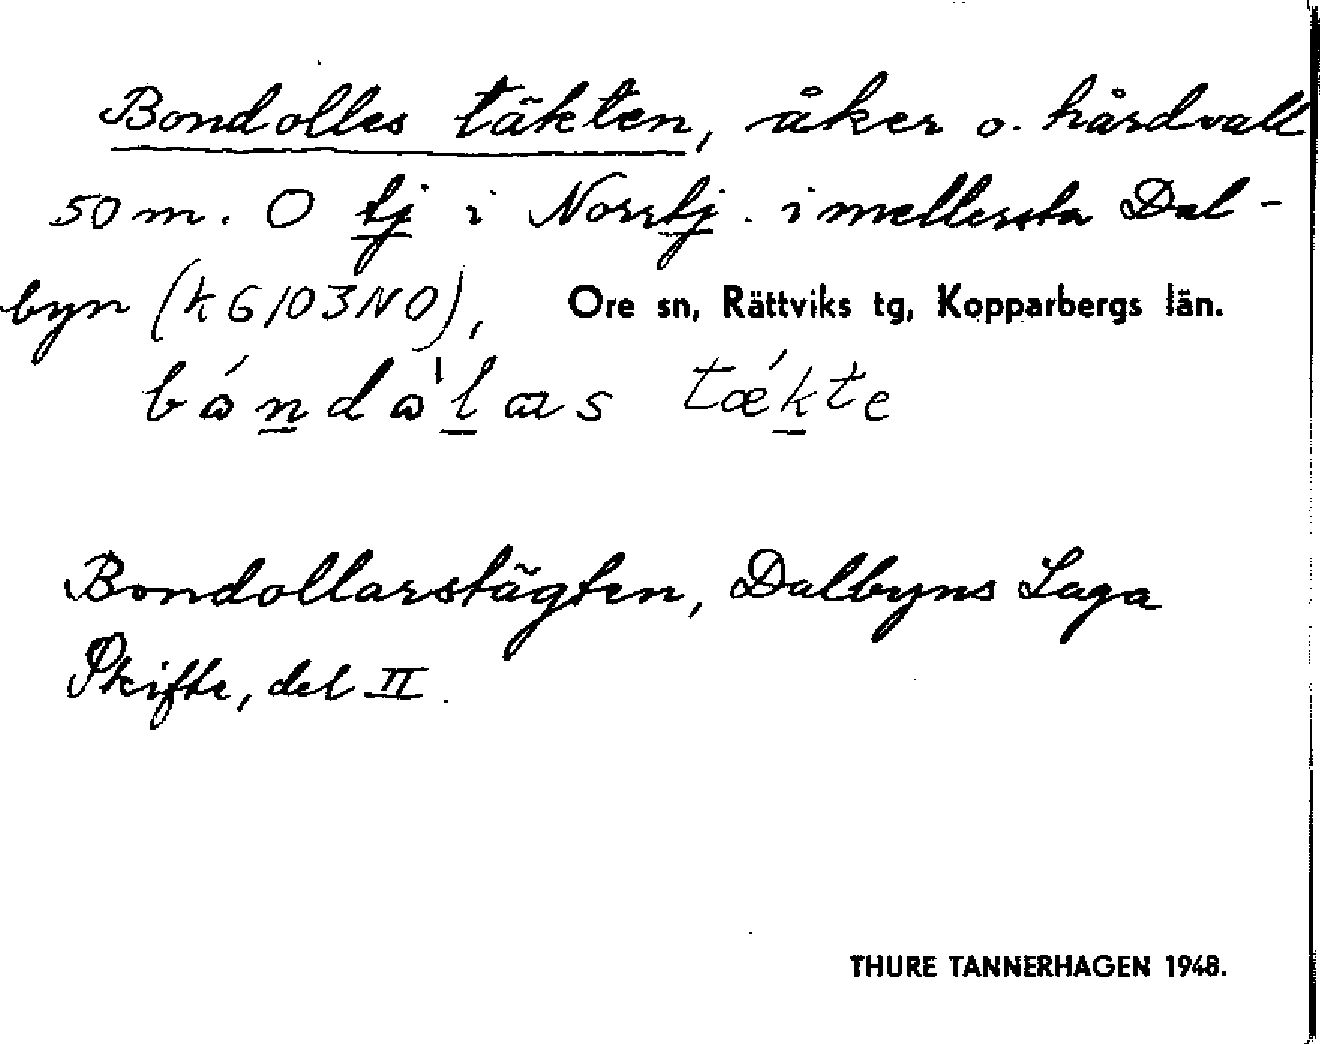 Bondolles täkten, åker o. hårdvall
50 m. O tj i Norrtj. i mellersta Dal-
byn (k G/03NO), Ore sn, Rättviks tg, Kopparbergs län.
bóndòlæs tækte
Bondollarstägten, Dalbyns Laga
Skifte, del II.
THURE TANNERHAGEN 1948.